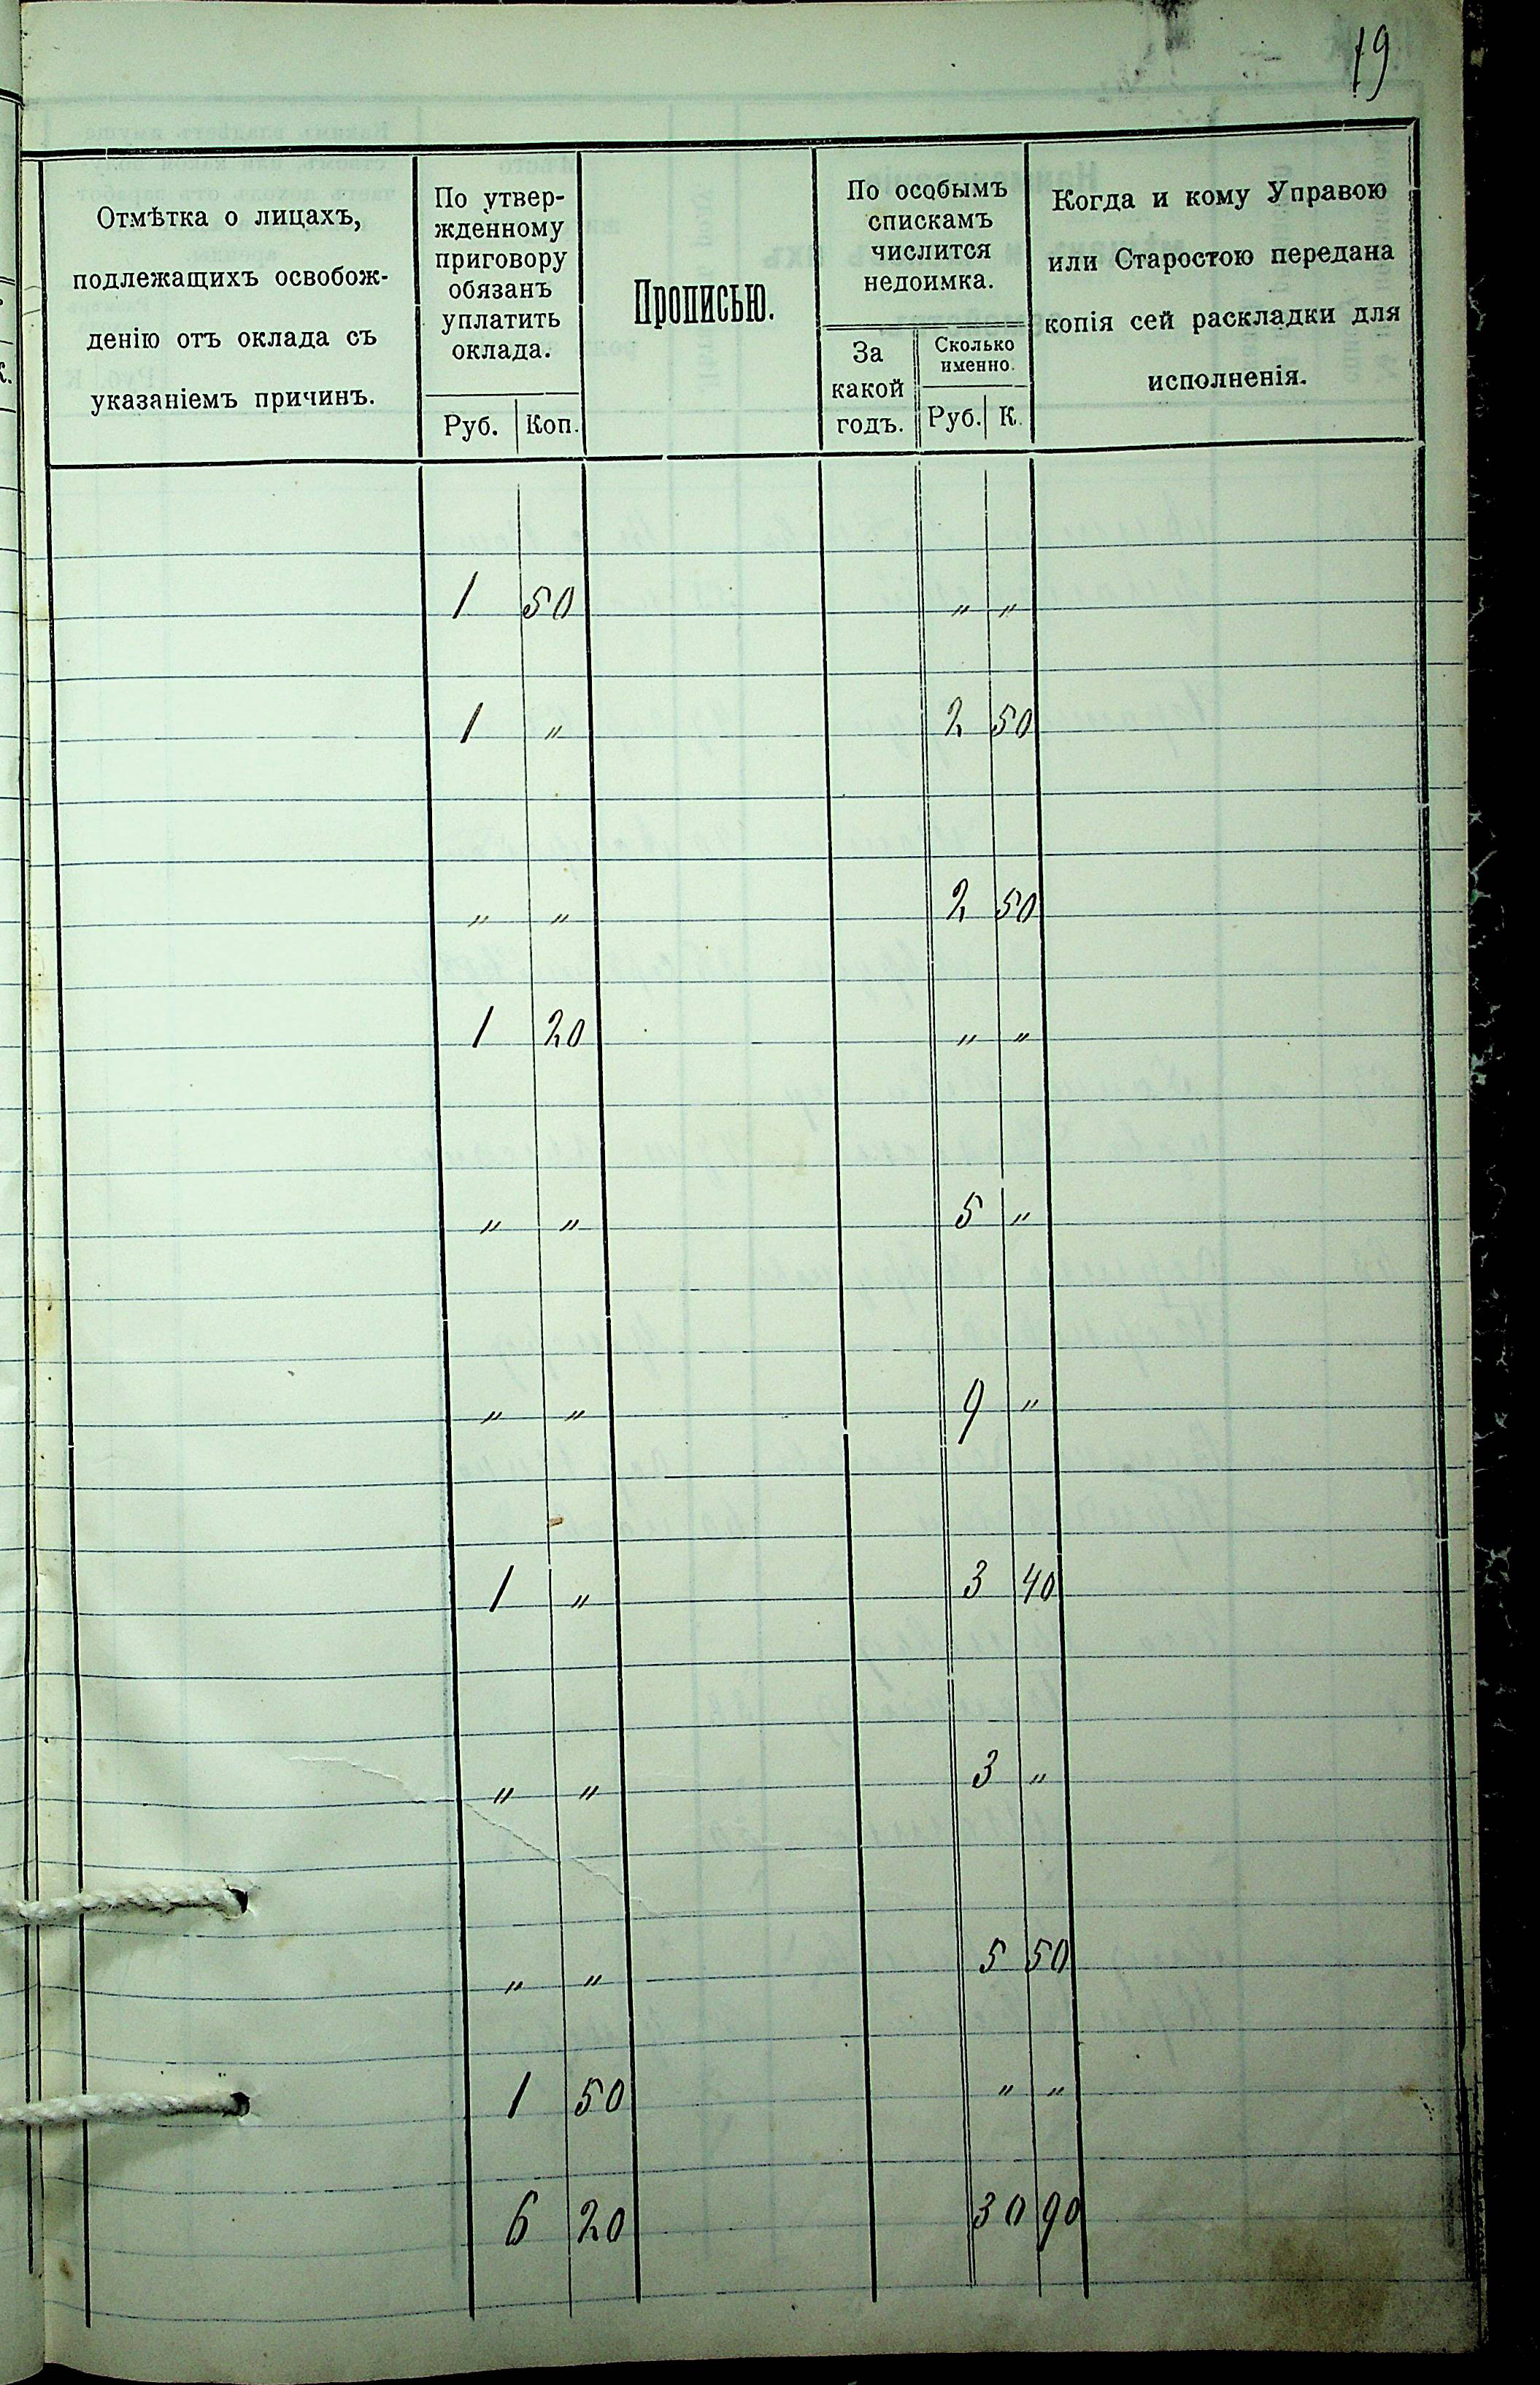 19
Отмѣтка о лицахъ,
подлежащихъ освобож-
денію отъ оклада съ
указаніемъ причинъ.
По утвер-
жденному
приговору
обязанъ
уплатить
оклада.
Руб. Коп.
Прописью.
По особымъ
спискамъ
числится
недоимка.
За
какой
годъ.
Сколько
именно.
Руб. К.
Когда и кому Управою
или Старостою передана
копія сей раскладки для
исполненія.
1 50 " "
1 " 2 50
" " 2 50
1 20 " "
" " 5 "
" " 9 "
1 " 3 40
" " 3 "
" " 5 50
1 50 " "
6 20 30 90